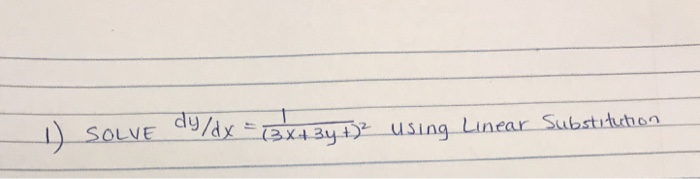 1) SOLVE dy/dx = 1/(3x+3y+)² using Linear Substitution